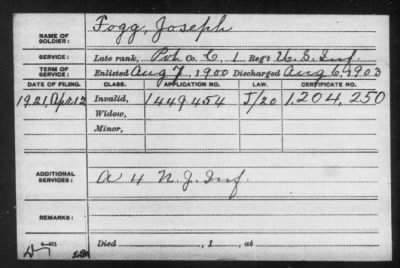 NAME OF SOLDIER: Fogg, Joseph
SERVICE: Late rank, Pvt Co. C, 1 Reg't U.S. Inf.
TERM OF SERVICE: Enlisted Aug 7, 1900 Discharged Aug 6, 1903
DATE OF FILING. CLASS. APPLICATION NO. LAW. CERTIFICATE NO.
1921, Apr 12 Invalid, 1449454 J/20 1,204,250
Widow,
Minor,
ADDITIONAL SERVICES: A 4 N.J. Inf.
REMARKS:
Died , 1 , at